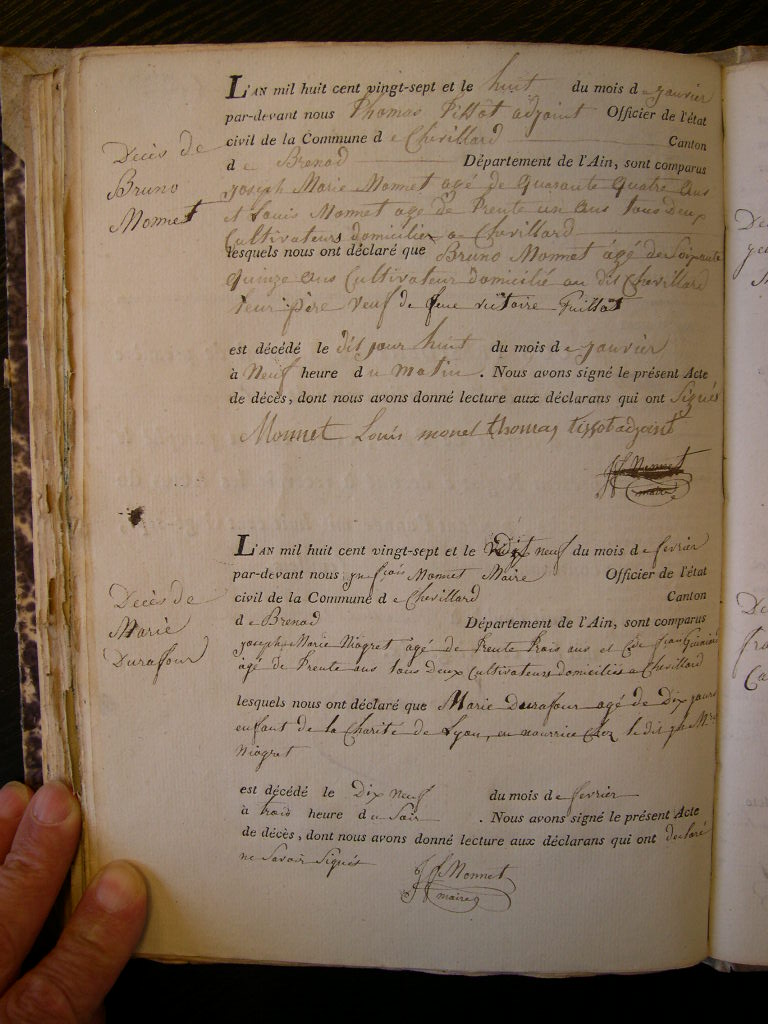 L'AN mil huit cent vingt-sept et le huit du mois de janvier
par-devant nous Thomas Tissot adjoint Officier de l'état
civil de la Commune de Chevillard Canton
de Brenod Département de l'Ain, sont comparus
Joseph Marie Monnet agé de Quarante Quatre ans
et Louis Monnet age de trente un ans tous Deux
Cultivateurs domicilies a Chevillard
lesquels nous ont déclaré que Bruno Monnet agé de Soixante
Quinze ans Cultivateur domicilié au dit Chevillard
leur père veuf de feue victoire Guillot
est décédé le dit jour huit du mois de janvier
à Neuf heure du matin. Nous avons signé le présent Acte
de décès, dont nous avons donné lecture aux déclarans qui ont Signés
Monnet Louis monet thomas tissot adjoint
Monnet
maire
Decès de
Bruno
Monnet
L'AN mil huit cent vingt-sept et le Dix neuf du mois de fevrier
par-devant nous Monnet Maire Officier de l'état
civil de la Commune de Chevillard Canton
de Brenod Département de l'Ain, sont comparus
joseph Marie Niogret agé de trente trois ans et
agé de trente ans tous Deux Cultivateurs domiciliés a Chevillard
lesquels nous ont déclaré que Marie Durafour agé de Dix jours
enfant de la Charité de Lyon, en nourrice Chez le dit
Niogret
est décédé le Dix neuf du mois de fevrier
à trois heure du Soir. Nous avons signé le présent Acte
de décès, dont nous avons donné lecture aux déclarans qui ont declaré
ne Savoir Signés
Monnet
maire
Decès de
Marie
Durafour